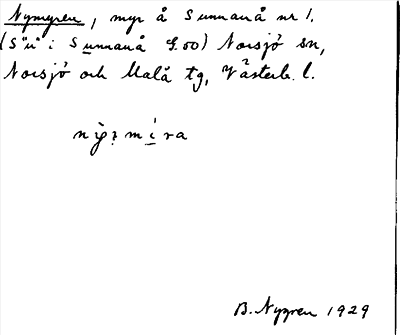 Nymyren, myr å Sunnanå nr 1.
(S "u" i Sunnanå G.00) Norsjö sn,
Norsjö och Malå tg, Västerb. l.
B. Nygren 1929